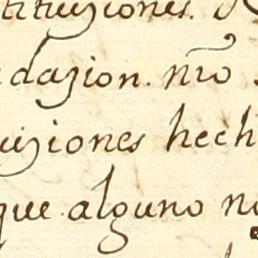 tituziones.
dazion. nr̃o
uziones hech
que alguno no